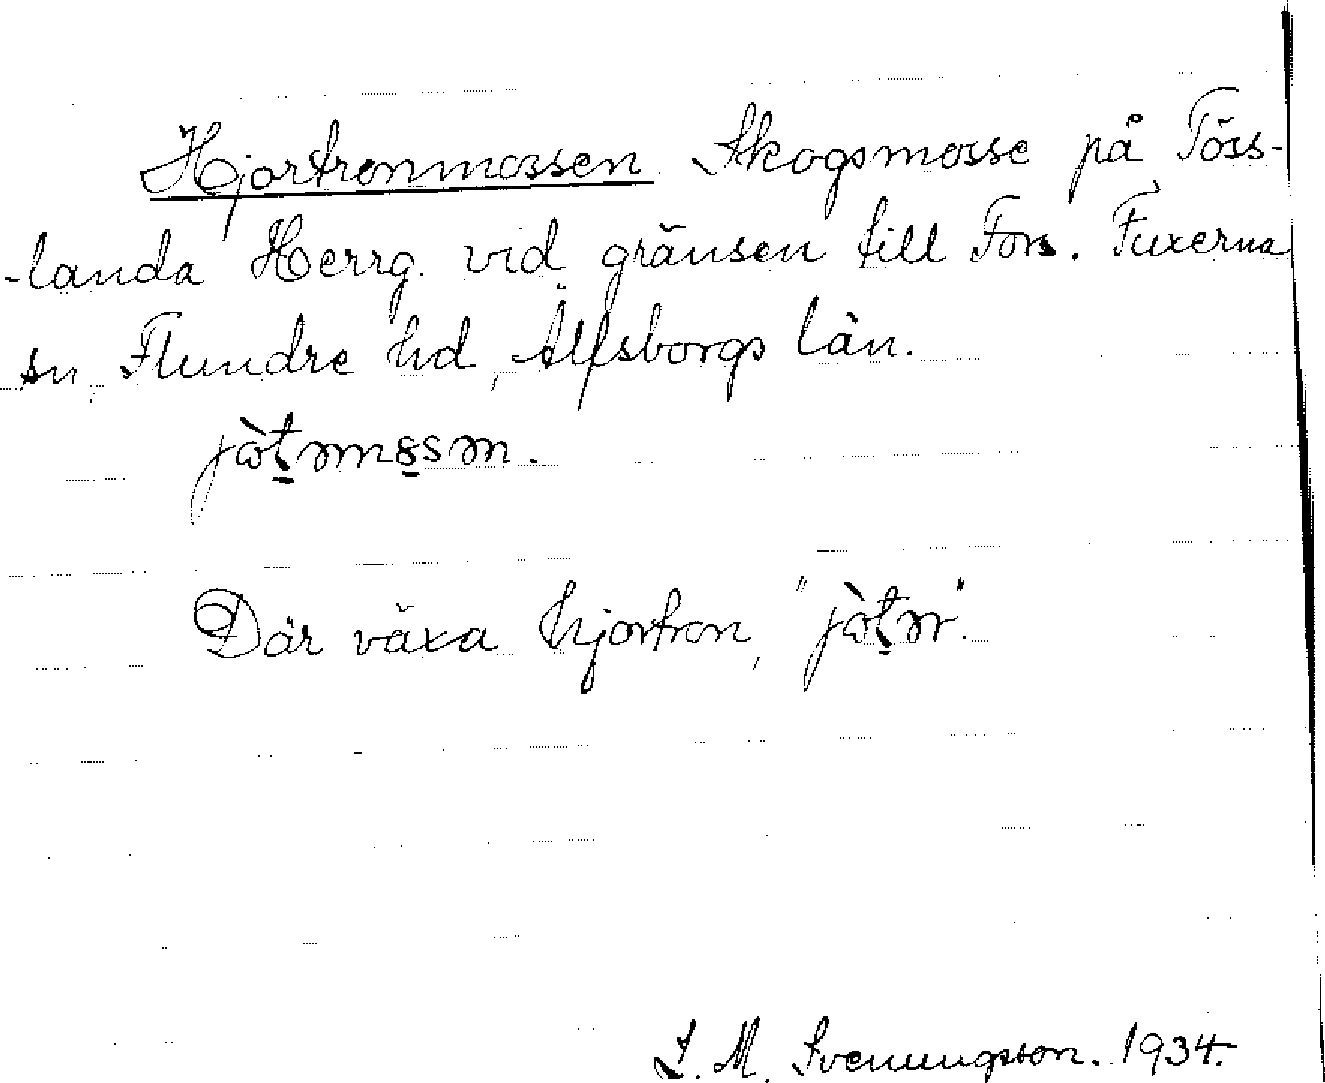 Hjortronmossen Skogsmosse på Töss-
-landa Herrg. vid gränsen till Fors. Fuxerna
sn, Flundre hd, Älfsborgs län.
Där växa hjortron,
S. M. Svenungsson. 1934.